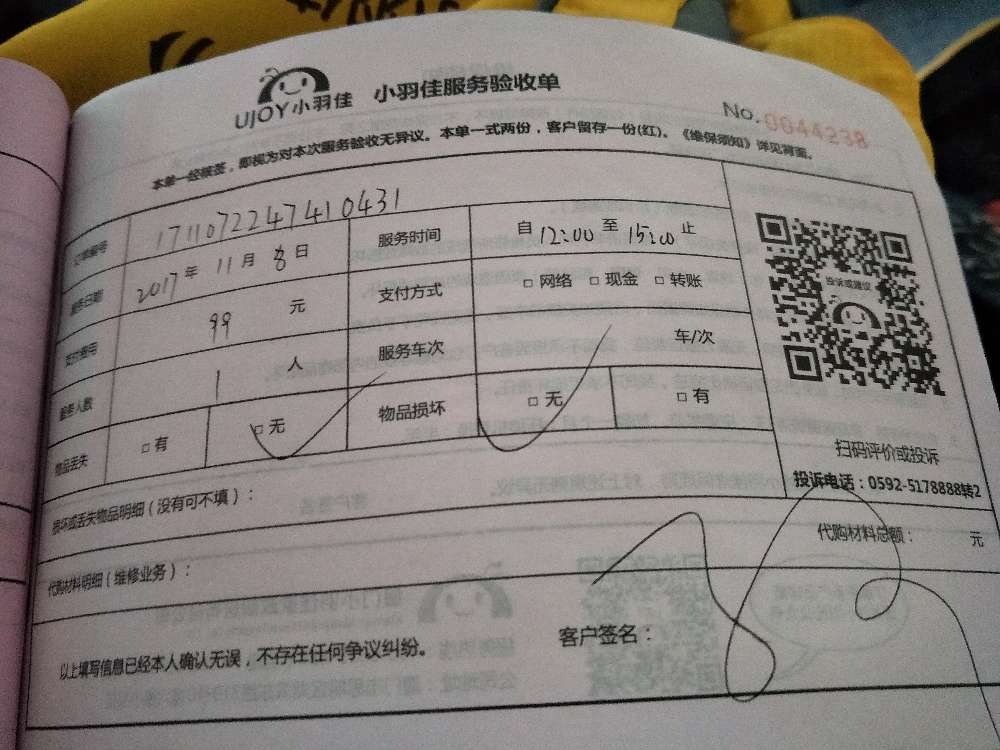 UJOY小羽佳 小羽佳服务验收单
No. 0044238
本单一经核签，即视为对本次服务验收无异议。本单一式两份，客户留存一份(红)。《维保须知》详见背面。
订单编号 171107224741043​1
服务日期 2017 年 11 月 8 日 服务时间 自 12:00 至 15:00 止
支付费用 99 元 支付方式 □ 网络 □ 现金 □ 转账
服务人数 1 人 服务车次 车/次
物品丢失 □ 有 □ 无 物品损坏 □ 无 □ 有
投诉或建议
扫码评价或投诉
投诉电话：0592-5178888转2
损坏或丢失物品明细（没有可不填）：
代购材料明细（维修业务）： 代购材料总额： 元
以上填写信息已经本人确认无误，不存在任何争议纠纷。 客户签名：